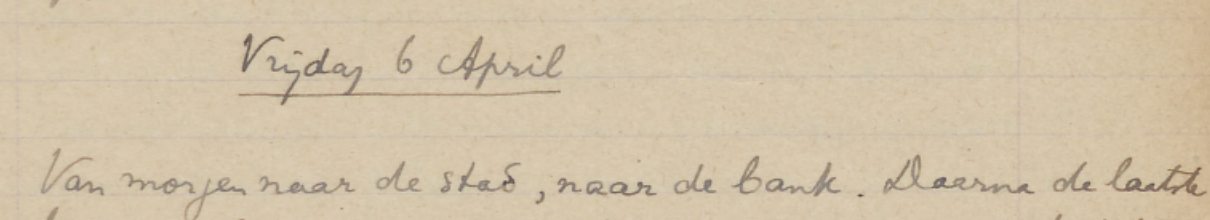 Vrijdag 6 April
Van morgen naar de stad, naar de bank. Daarna de laatste